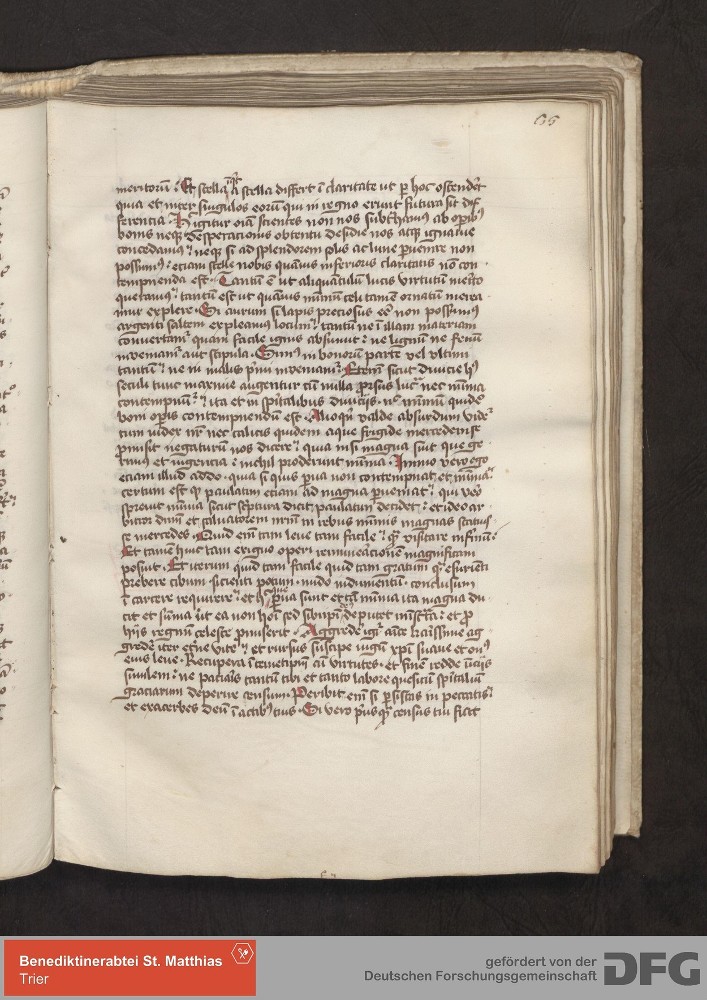 65
meritorū Et stella a stella differt ī claritate ut p hoc ostenderet
quia et inter singulos eorū qui in regno erunt futura sit dif
ferencia igitur oīa scientes non nos subtrham9 ab operib9
bonis neq desperacionis obtentu desidie nos atq ignauie
concedam9 neq si ad splendorem solis ac lune puenire non
possum9 etiam stelle nobis quāuis inferioris claritatis nō con
tempnenda est Tantū ē ut aliquātulū lucis virtutū merito
queram9 tantū est ut quāuis mīmū celi tamē ornatū merea
mur explere Si aurum si lapis preciosus eē non possum9
argenti saltem expleam9 locum tantū ne ī illam materiam
conuertam quam facile ignis absumit ne lignū ne fenū
inueniam aut stipula Sim9 in bonorum parte vel vltimi
tantū ne in malis pmi inueniam Etenī sicut diuicie h9
seculi tunc maxime augentur cū nulla prorsus luc nec mīma
contempnūt ita et in spitalibus diuiciis mīmū quidē
boni operis contempnendū est Alioqn valde absurdum vide
tum iudex nr nec calicis quidem aque frigide mercedem se
promisit negaturū nos dicere quia nisi magna sint que ge
rimus et ingencia nichil proderunt mīma Immo vero ego
etiam illud addo qua si quis pua non contempnat et mīma
certum est q paulatim etiam ad magna pueniat qui vero
spreuit mīma sicut scriptura dicit paulatim decidet et ideo ar
bitror dnm et saluatorem nrm in rebus mīmis magnas statuis
se mercedes Quid enī tam leue tam facile q visitare infirmū
Et tamen huic tam exiguo operi remuneracionem magnificam
posuit Et iterum quid tam facile quid tam gratum q esurienti
prebere cibum sicienti potum nudo indumentū conclusum
ī carcere requirere et h pua sunt et mīma ita magna du
cit et summa ut ea non homī sed sibi ipī deputet mīstrari et pro
hiis regnum celeste promiserit Aggredere igr amice karissime ag
gredere iter eterne vite et rursus suscipe iugū xpi suaue et on9
eius leue Recupera ī temetipm cū virtutes et finem redde iniciis
similem ne paciaris tantū tibi et tanto labore quesitū spitaliū
graciarum deperire censum Peribit enī si psistas in peccatis
et exacerbes deū ī actib9 tuis Si vero prius q census tui fiat
Benediktinerabtei St. Matthias
Trier
gefördert von der
Deutschen Forschungsgemeinschaft
DFG